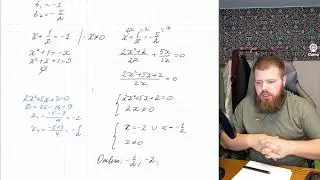 b₁ = -1
b₂ = -5/2
x + 1/x = -1 | x ≠ 0
x² + 1 = -x
x² + x + 1 = 0
∅
x + 1/x = -5/2
2x²+2/2x + 5x/2x = 0
2x²+5x+2/2x = 0
2x²+5x+2=0
D = 25 - 16 = 9
x₁ = -5-3/4 = -2
x₂ = -5+3/4 = -1/2
{ 2x²+5x+2=0
2x ≠ 0
{ x = -2 ∪ x = -1/2
x ≠ 0
-1/2, -2,